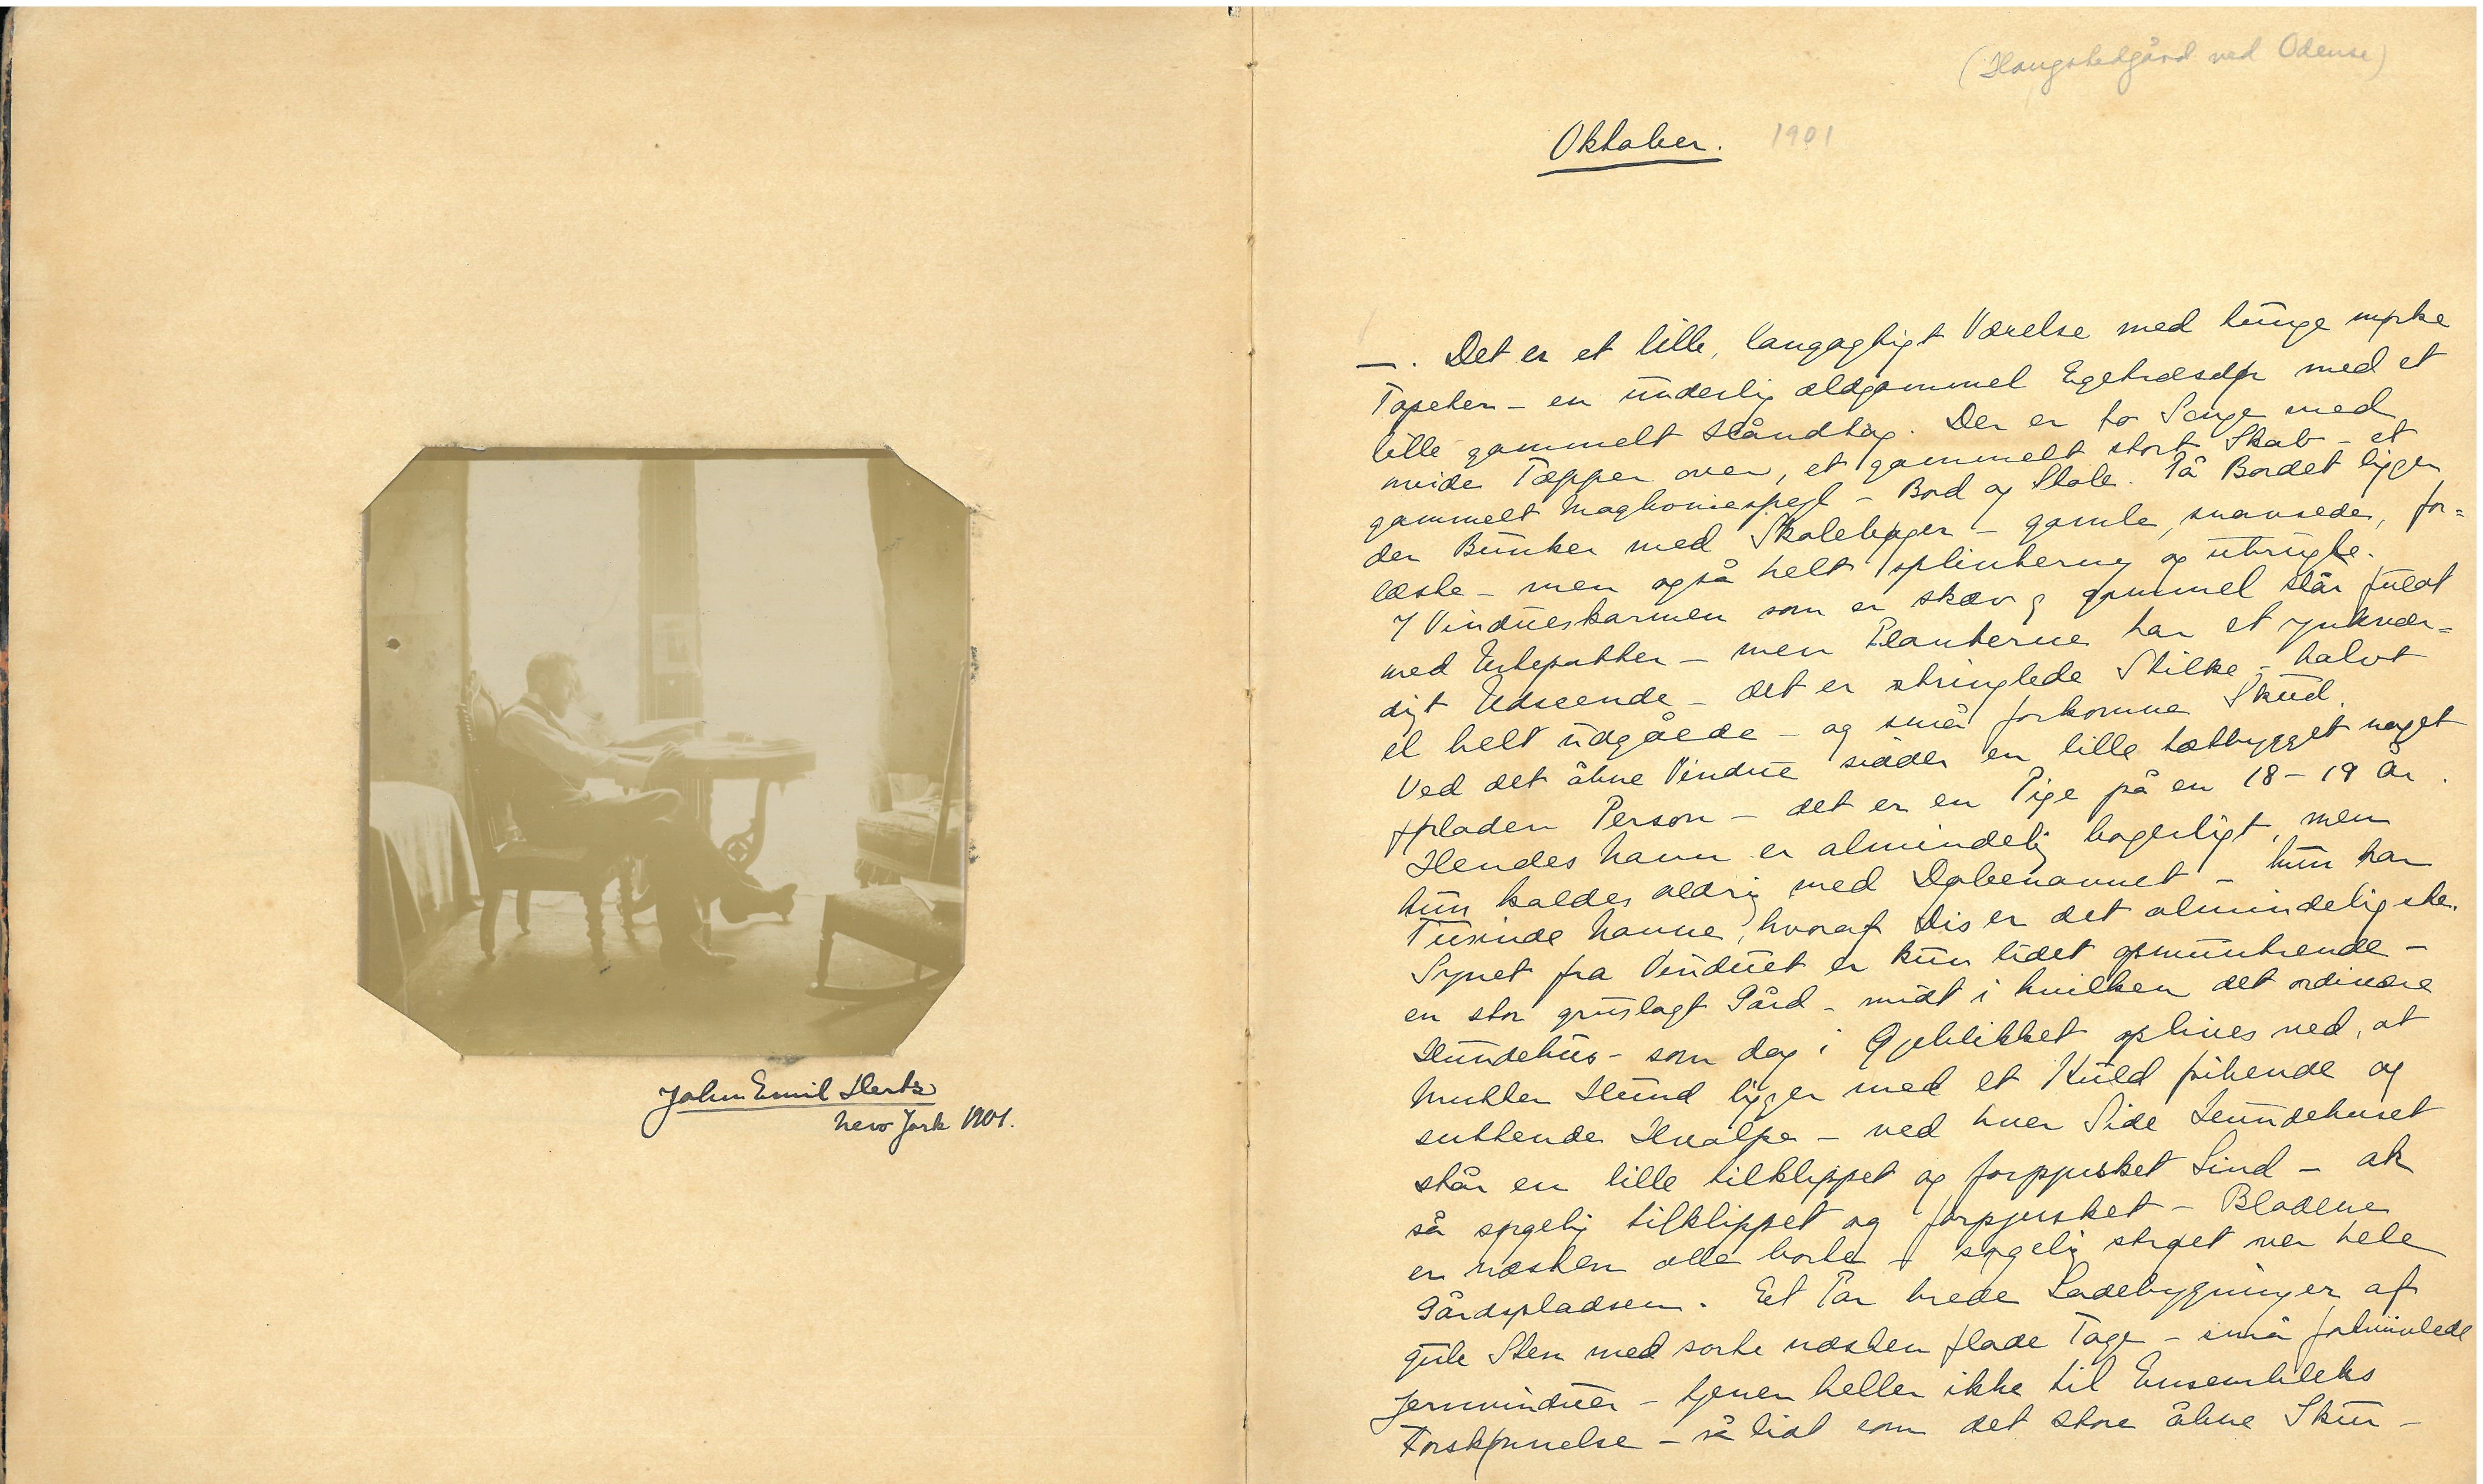 John Emil Herts
New York 1901.
(Haugstedgård ved Odense)
Oktober. 1901
—. Det er et lille, langagtigt Værelse med tunge mørke
Tapeter – en underlig ældgammel Egetræsdør med et
lille gammelt Håndtag. Der er to Senge med
hvide Tæpper over, et gammelt stort Skab – et
gammelt Maghoniespejl – Bord og Stole. På Bordet ligger
der Bunker med Skolebøger – gamle, snavsede, for=
læste – men også helt splinterny og ubrugte.
I Vindueskarmen som er skæv og gammel står fuldt
med Urtepotter – men Planterne har et ynkvær=
digt Udseende – det er stringlede Stilke – halvt
el helt udgåede – og små forkomne Skud.
Ved det åbne Vindue sidder en lille tætbygget noget
firladen Person – det er en Pige på en 18 – 19 År.
Hendes Navn er almindelig borgerligt, men
hun kaldes aldrig med Døbenavnet – hun har
Tusinde Navne, hvoraf Dis er det almindeligste.
Synet fra Vinduet er kun lidet opmuntrende –
en stor gruslagt Gård – midt i hvilken det ordinære
Hundehus – som dog i Øjeblikket oplives ved, at
Mutter Hund ligger med et Kuld pibende og
suttende Hvalpe – ved hver Side Hundehuset
står en lille tilklippet og forpjusket Lind – ak
så sørgelig tilklippet og forpjusket – Bladene
er næsten alle borte – sørgelig strøet over hele
Gårdspladsen. Et Par brede Ladebygninger af
gule Sten med sorte næsten flade Tage – små
Jernvinduer – tjener heller ikke til Ensemblets
Forskønnelse – så lidt som det store åbne Skur –